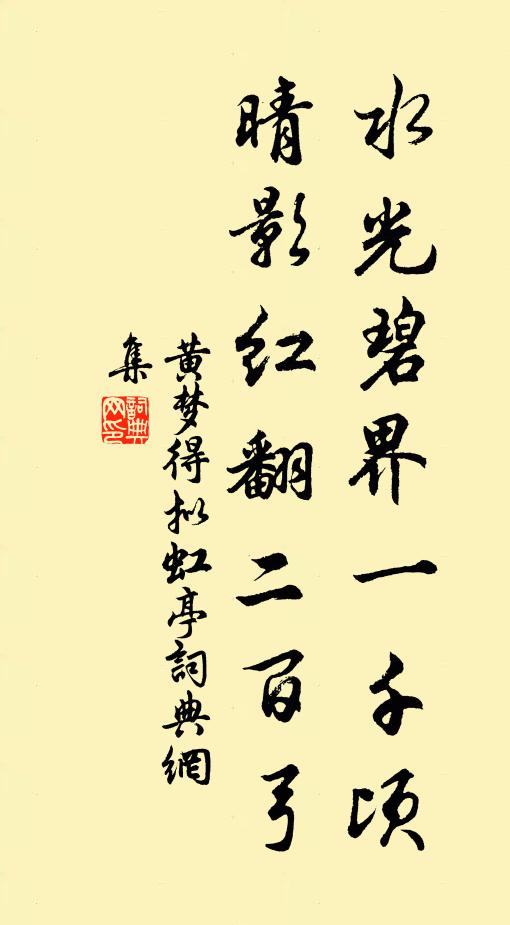 水光碧界一千顷
晴影红翻二百弓
黄梦得拟虹亭詞典網
集
詞典
网印